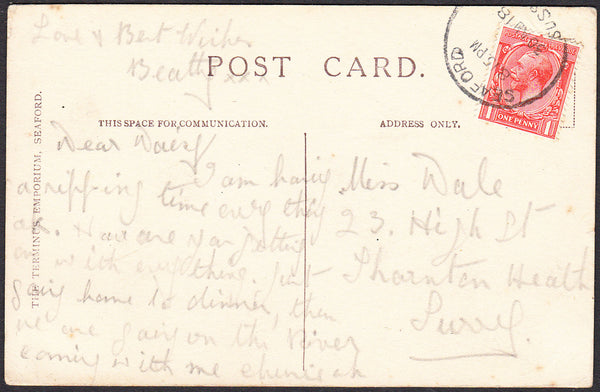 Love & Best Wishes
Beatty xxx
POST CARD.
THIS SPACE FOR COMMUNICATION.
ADDRESS ONLY.
THE TERMINUS EMPORIUM, SEAFORD.
SEAFORD
5 PM
18
ONE PENNY
Dear Daisy
I am having
a ripping time every thing
How are you getting
on with everything. Just
going home to dinner, then
we are going on the river
coming with me
Miss Dale
23. High St
Thornton Heath
Surrey.